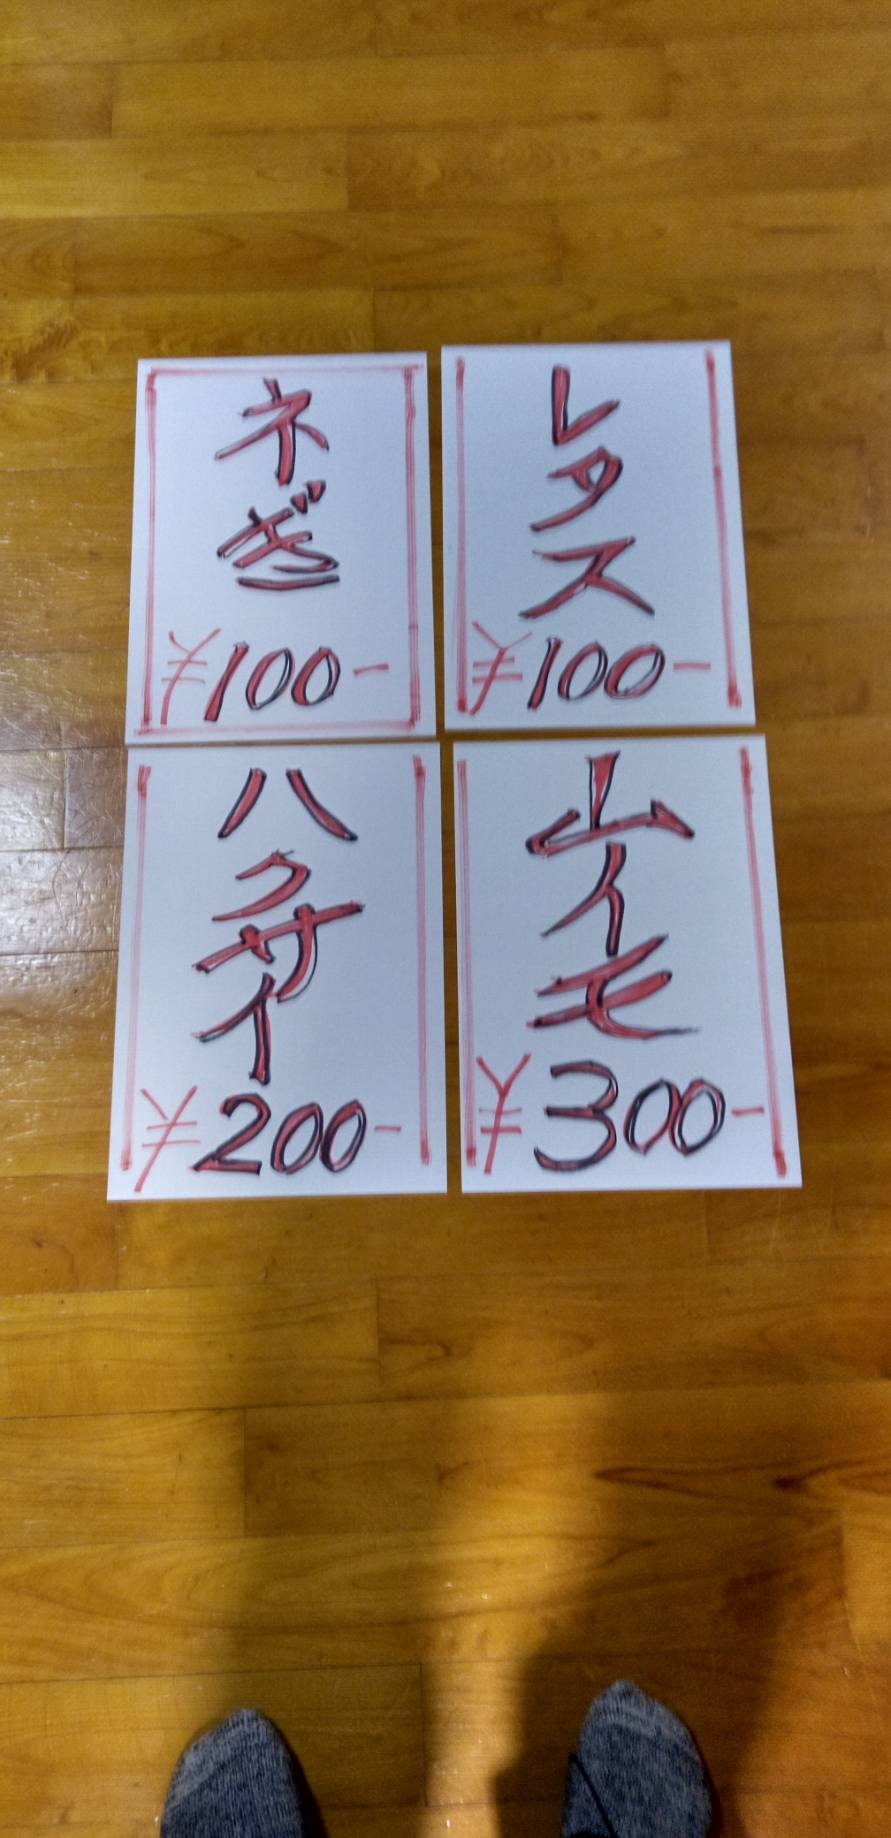 ネぎ
¥100-
レタス
¥100-
ハクサイ
¥200-
山イモ
¥300-